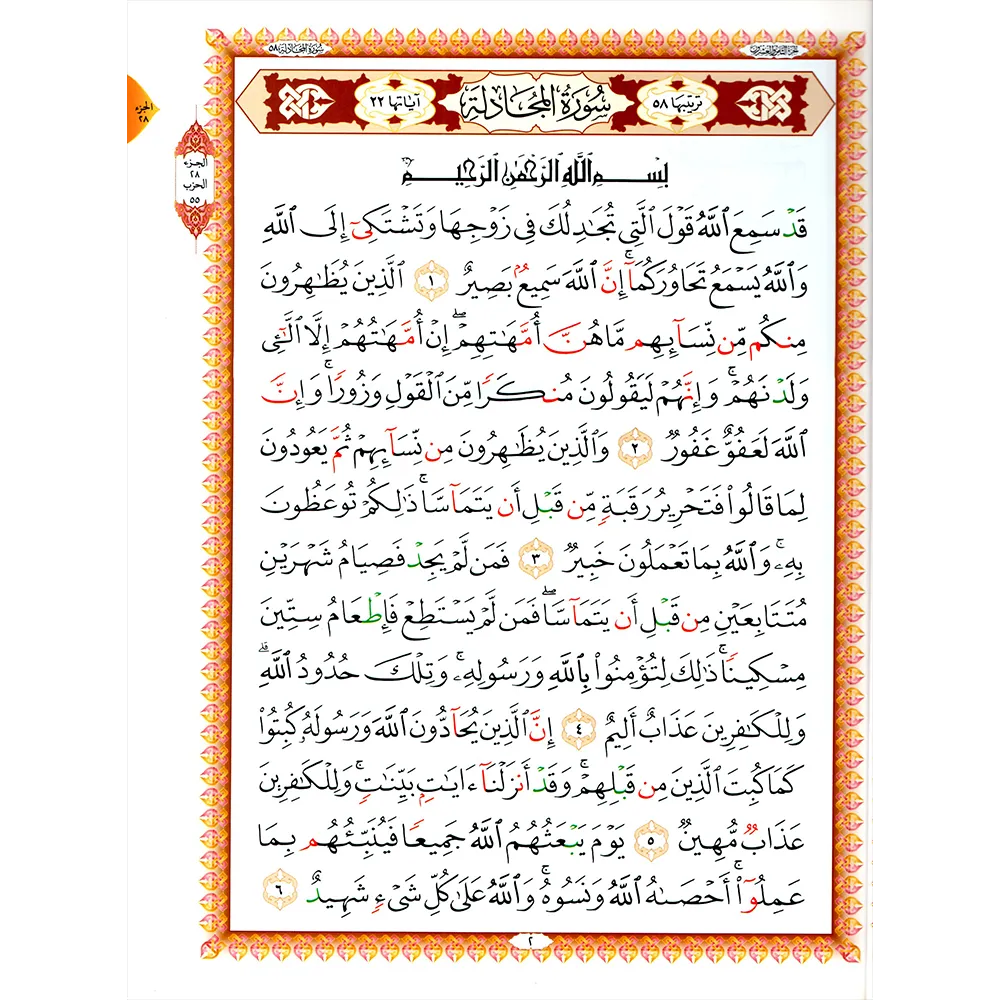 سورة المجادلة ٥٨
الجزء الثامن والعشرون
الجزء
٢٨
ترتيبها ٥٨
سُورَةُ المُجَادلة
آياتها ٢٢
الجزء
٢٨
الحزب
٥٥
بِسْمِ ٱللَّهِ ٱلرَّحْمَٰنِ ٱلرَّحِيمِ
قَدْ سَمِعَ ٱللَّهُ قَوْلَ ٱلَّتِي تُجَٰدِلُكَ فِي زَوْجِهَا وَتَشْتَكِيٓ إِلَى ٱللَّهِ
وَٱللَّهُ يَسْمَعُ تَحَاوُرَكُمَآۚ إِنَّ ٱللَّهَ سَمِيعُۢ بَصِيرٌ ١ ٱلَّذِينَ يُظَٰهِرُونَ
مِنكُم مِّن نِّسَآئِهِم مَّا هُنَّ أُمَّهَٰتِهِمْۖ إِنْ أُمَّهَٰتُهُمْ إِلَّا ٱلَّٰٓـِٔي
وَلَدْنَهُمْۚ وَإِنَّهُمْ لَيَقُولُونَ مُنكَرًا مِّنَ ٱلْقَوْلِ وَزُورًاۚ وَإِنَّ
ٱللَّهَ لَعَفُوٌّ غَفُورٌ ٢ وَٱلَّذِينَ يُظَٰهِرُونَ مِن نِّسَآئِهِمْ ثُمَّ يَعُودُونَ
لِمَا قَالُواْ فَتَحْرِيرُ رَقَبَةٍ مِّن قَبْلِ أَن يَتَمَآسَّاۚ ذَٰلِكُمْ تُوعَظُونَ
بِهِۦۚ وَٱللَّهُ بِمَا تَعْمَلُونَ خَبِيرٌ ٣ فَمَن لَّمْ يَجِدْ فَصِيَامُ شَهْرَيْنِ
مُتَتَابِعَيْنِ مِن قَبْلِ أَن يَتَمَآسَّاۖ فَمَن لَّمْ يَسْتَطِعْ فَإِطْعَامُ سِتِّينَ
مِسْكِينًاۚ ذَٰلِكَ لِتُؤْمِنُواْ بِٱللَّهِ وَرَسُولِهِۦۚ وَتِلْكَ حُدُودُ ٱللَّهِۗ
وَلِلْكَٰفِرِينَ عَذَابٌ أَلِيمٌ ٤ إِنَّ ٱلَّذِينَ يُحَآدُّونَ ٱللَّهَ وَرَسُولَهُۥ كُبِتُواْ
كَمَا كُبِتَ ٱلَّذِينَ مِن قَبْلِهِمْۚ وَقَدْ أَنزَلْنَآ ءَايَٰتٍۭ بَيِّنَٰتٍۚ وَلِلْكَٰفِرِينَ
عَذَابٌ مُّهِينٌ ٥ يَوْمَ يَبْعَثُهُمُ ٱللَّهُ جَمِيعًا فَيُنَبِّئُهُم بِمَا
عَمِلُوٓاْۚ أَحْصَىٰهُ ٱللَّهُ وَنَسُوهُۚ وَٱللَّهُ عَلَىٰ كُلِّ شَيْءٍ شَهِيدٌ ٦
٢